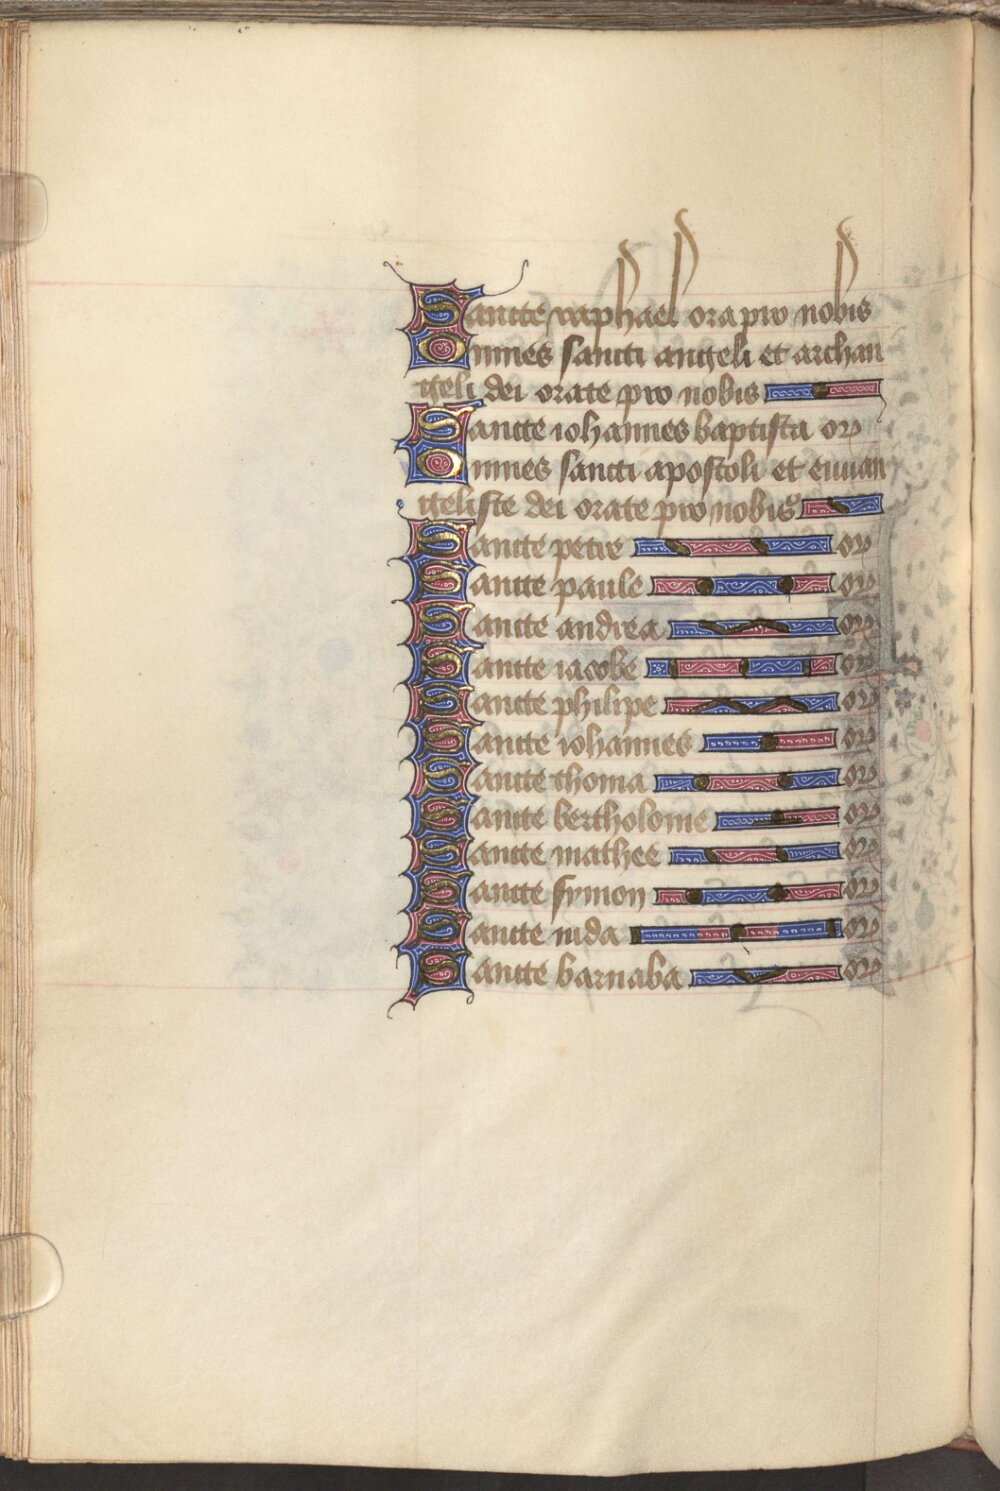 Sancte raphael ora pro nobis
Omnes sancti angeli et archan
geli dei orate pro nobis
Sancte iohannes baptista or
Omnes sancti apostoli et euuan
geliste dei orate pro nobis
Sancte petre or
Sancte paule or
Sancte andrea or
Sancte iacobe or
Sancte philipe or
Sancte iohannes or
Sancte thoma or
Sancte bertholome or
Sancte mathee or
Sancte symon or
Sancte iuda or
Sancte barnaba or